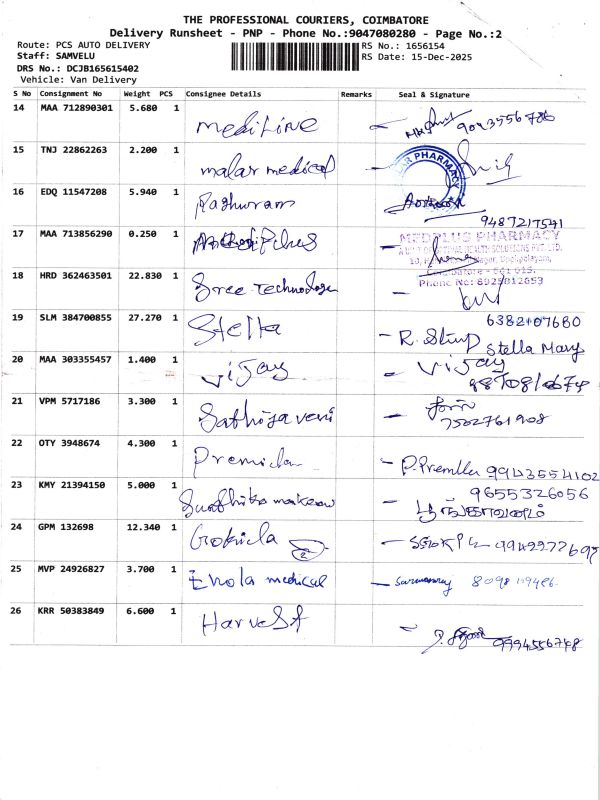 THE PROFESSIONAL COURIERS, COIMBATORE
Delivery Runsheet - PNP - Phone No.:9047080280 - Page No.:2
Route: PCS AUTO DELIVERY
Staff: SAMVELU
DRS No.: DCJB165615402
Vehicle: Van Delivery
RS No.: 1656154
RS Date: 15-Dec-2025
S No Consignment No Weight PCS Consignee Details Remarks Seal & Signature
14 MAA 712890301 5.680 1 Mediline 9043556786
15 TNJ 22862263 2.200 1 malar medical PHARMACY
16 EDQ 11547208 5.940 1 Raghuram 9487217541
17 MAA 713856290 0.250 1
MEDPLUS PHARMACY
18 HRD 362463501 22.830 1 Sree Technologe
Coimbatore - 641 015.
Phone No: 8925812653
19 SLM 384700855 27.270 1 Stella 6382107680
R. Stella Mary
20 MAA 303355457 1.400 1 Vijay - Vijay
21 VPM 5717186 3.300 1 Sathiyaveni
7502761908
22 OTY 3948674 4.300 1 Premila - P. Premila 9943554102
23 KMY 21394150 5.000 1 9655326056
24 GPM 132698 12.340 1 Gokila 2
25 MVP 24926827 3.700 1 Enola medical
26 KRR 50383849 6.600 1 Harvest 9994556748